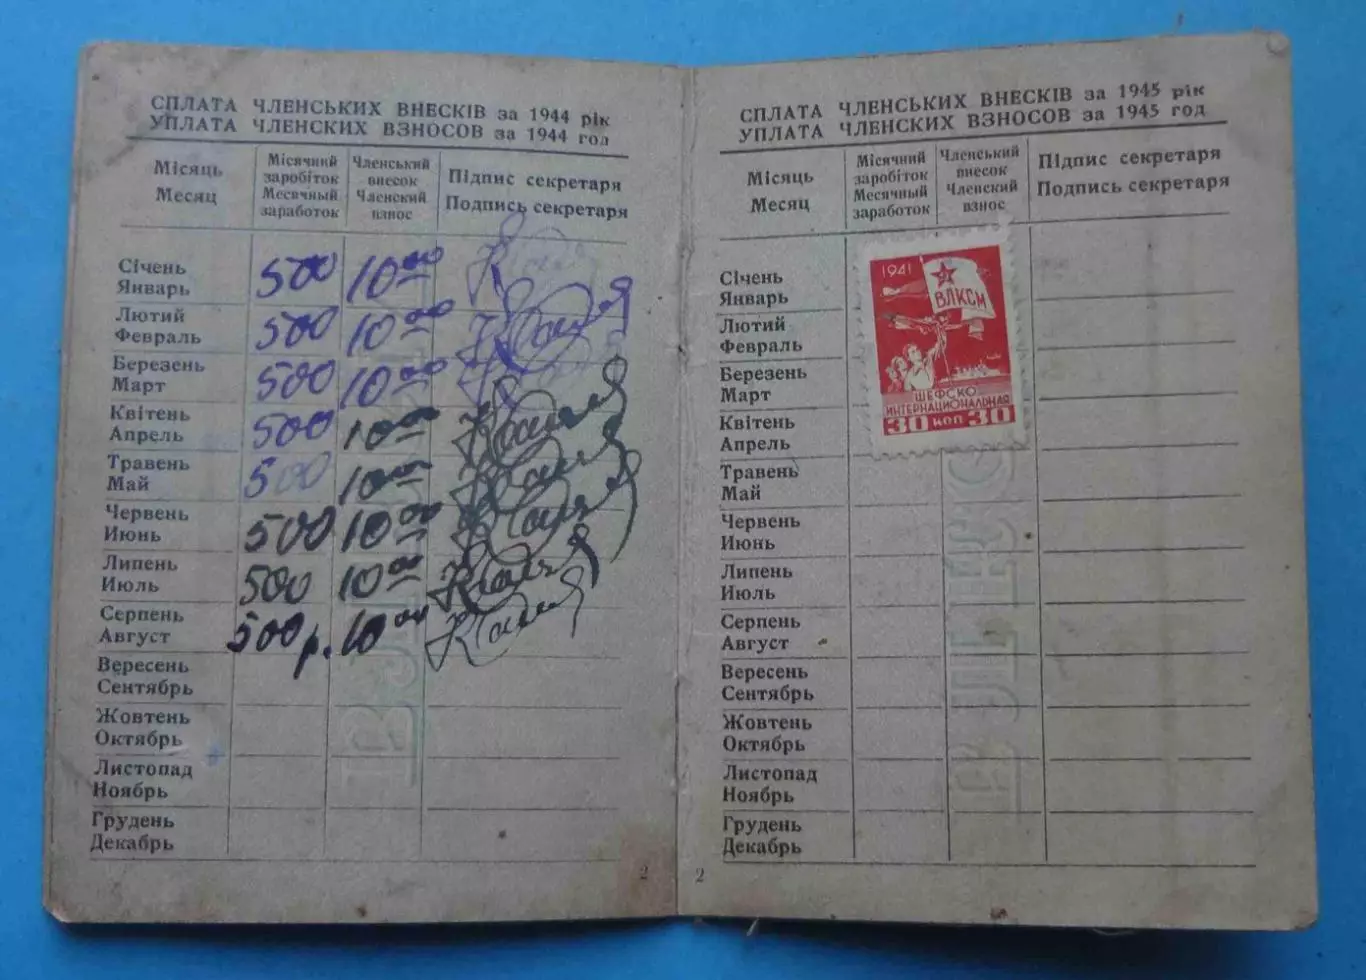 СПЛАТА ЧЛЕНСЬКИХ ВНЕСКІВ за 1944 рік
УПЛАТА ЧЛЕНСКИХ ВЗНОСОВ за 1944 год
Місяць
Месяц
Місячний
заробіток
Месячный
заработок
Членський
внесок
Членский
взнос
Підпис секретаря
Подпись секретаря
Січень
Январь
500 10 00
Лютий
Февраль
500 10 00
Березень
Март
500 10 00
Квітень
Апрель
500 10 00
Травень
Май
500 10 00
Червень
Июнь
500 10 00
Липень
Июль
500 10 00
Серпень
Август
500 р. 10 00
Вересень
Сентябрь
Жовтень
Октябрь
Листопад
Ноябрь
Грудень
Декабрь
2
СПЛАТА ЧЛЕНСЬКИХ ВНЕСКІВ за 1945 рік
УПЛАТА ЧЛЕНСКИХ ВЗНОСОВ за 1945 год
Місяць
Месяц
Місячний
заробіток
Месячный
заработок
Членський
внесок
Членский
взнос
Підпис секретаря
Подпись секретаря
Січень
Январь
Лютий
Февраль
Березень
Март
Квітень
Апрель
Травень
Май
Червень
Июнь
Липень
Июль
Серпень
Август
Вересень
Сентябрь
Жовтень
Октябрь
Листопад
Ноябрь
Грудень
Декабрь
1941
ВЛКСМ
ШЕФСКО
ИНТЕРНАЦИОНАЛЬНАЯ
30 КОП 30
ВЛКСМ
2